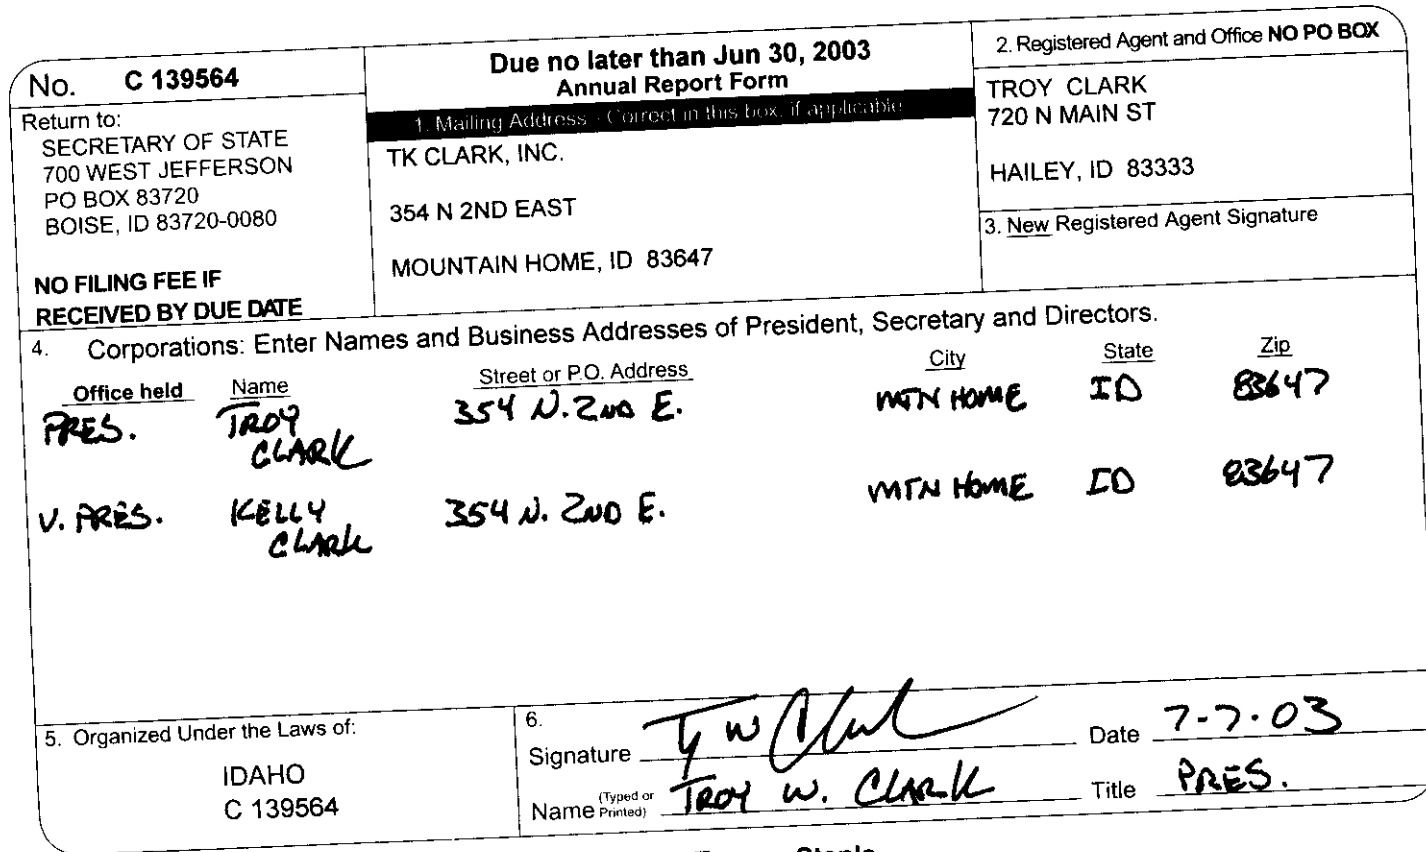 No. C 139564
Return to:
SECRETARY OF STATE
700 WEST JEFFERSON
PO BOX 83720
BOISE, ID 83720-0080
NO FILING FEE IF
RECEIVED BY DUE DATE
Due no later than Jun 30, 2003
Annual Report Form
1. Mailing Address - Correct in this box, if applicable
TK CLARK, INC.
354 N 2ND EAST
MOUNTAIN HOME, ID 83647
2. Registered Agent and Office NO PO BOX
TROY CLARK
720 N MAIN ST
HAILEY, ID 83333
3. New Registered Agent Signature
4. Corporations: Enter Names and Business Addresses of President, Secretary and Directors.
Office held Name Street or P.O. Address City State Zip
PRES. TROY CLARK 354 N. 2ND E. MTN HOME ID 83647
V. PRES. KELLY CLARK 354 N. 2ND E. MTN HOME ID 83647
5. Organized Under the Laws of:
IDAHO
C 139564
6.
Signature Date 7-7-03
Name (Typed or Printed) TROY W. CLARK Title PRES.